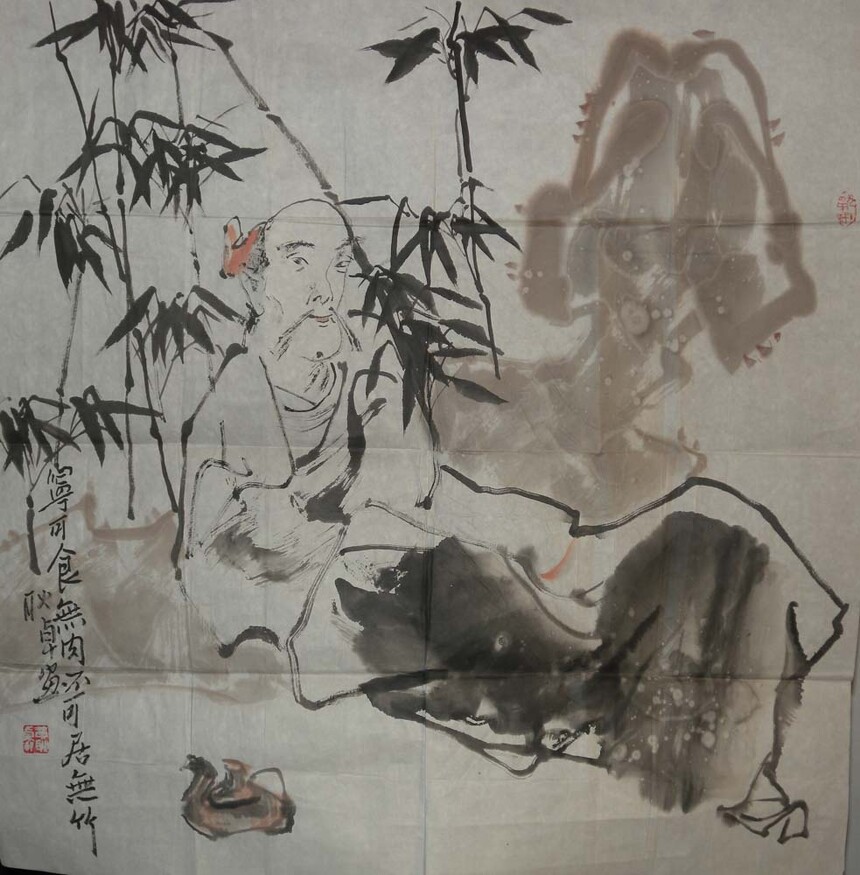 寧可食無肉不可居無竹
耿卓畫